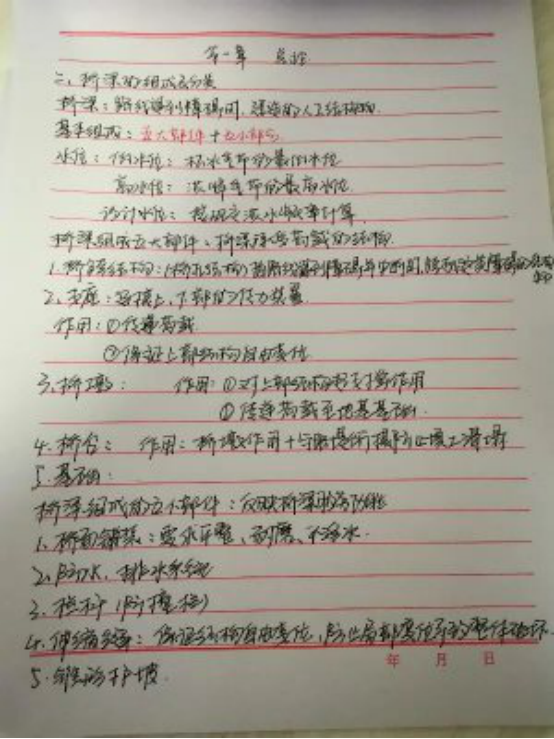 第一章 总论
二、桥梁的组成与分类
桥梁：路线遇到障碍时，建造的人工结构物.
基本组成：五大部件+五小部件
水位：低水位：枯水季节的最低水位
高水位：洪峰季节的最高水位
设计水位：按规定洪水频率计算.
桥梁组成五大部件：桥梁承受荷载的结构
1.桥跨结构：(桥孔结构) 路线遇到障碍中断时,跨越这类障碍的结构
2.支座：连接上、下部的传力装置
作用：①传递荷载
②保证上部结构自由变位
3.桥墩： 作用：①对上部结构起支撑作用
②传递荷载至地基基础.
4.桥台： 作用：桥墩作用+与路堤衔接防止填土滑塌
5.基础：
桥梁组成的五小部件：反映桥梁的服务功能
1、桥面铺装：要求平整、耐磨、不渗水.
2、防水、排水系统
3、栏杆 (防撞栏)
4、伸缩缝：保证结构自由变位，防止局部变位导致整体破坏.
年 月 日
5.锥形护坡.